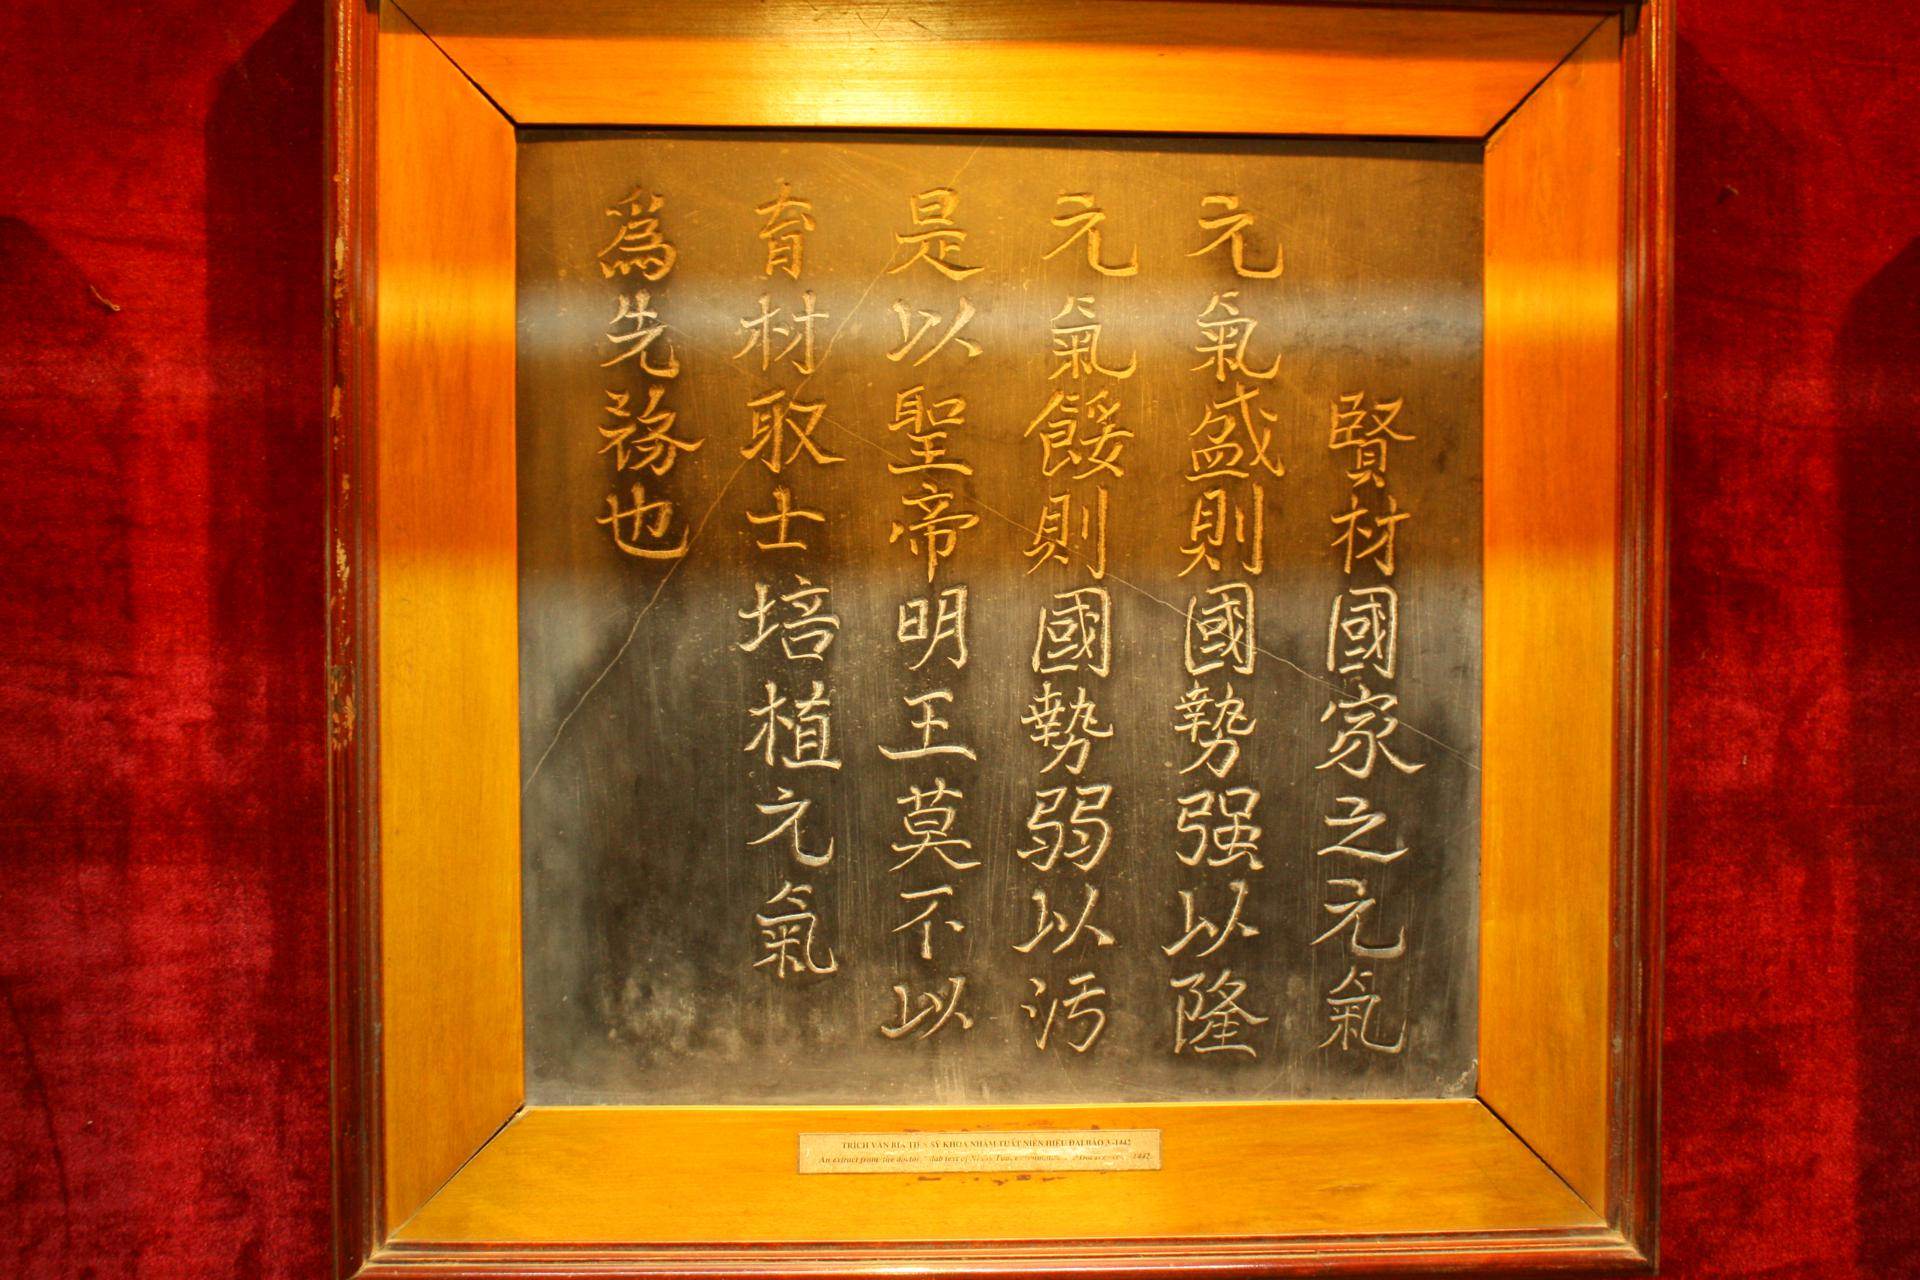 賢材國家之元氣
元氣盛則國勢强以隆
元氣餒則國勢弱以污
是以聖帝明王莫不以
育材取士培植元氣
爲先務也
TRÍCH VĂN BIA TIẾN SỸ KHOA NHÂM TUẤT NIÊN HIỆU ĐẠI BẢO 3-1442
An extract from the doctor slab text of
1442